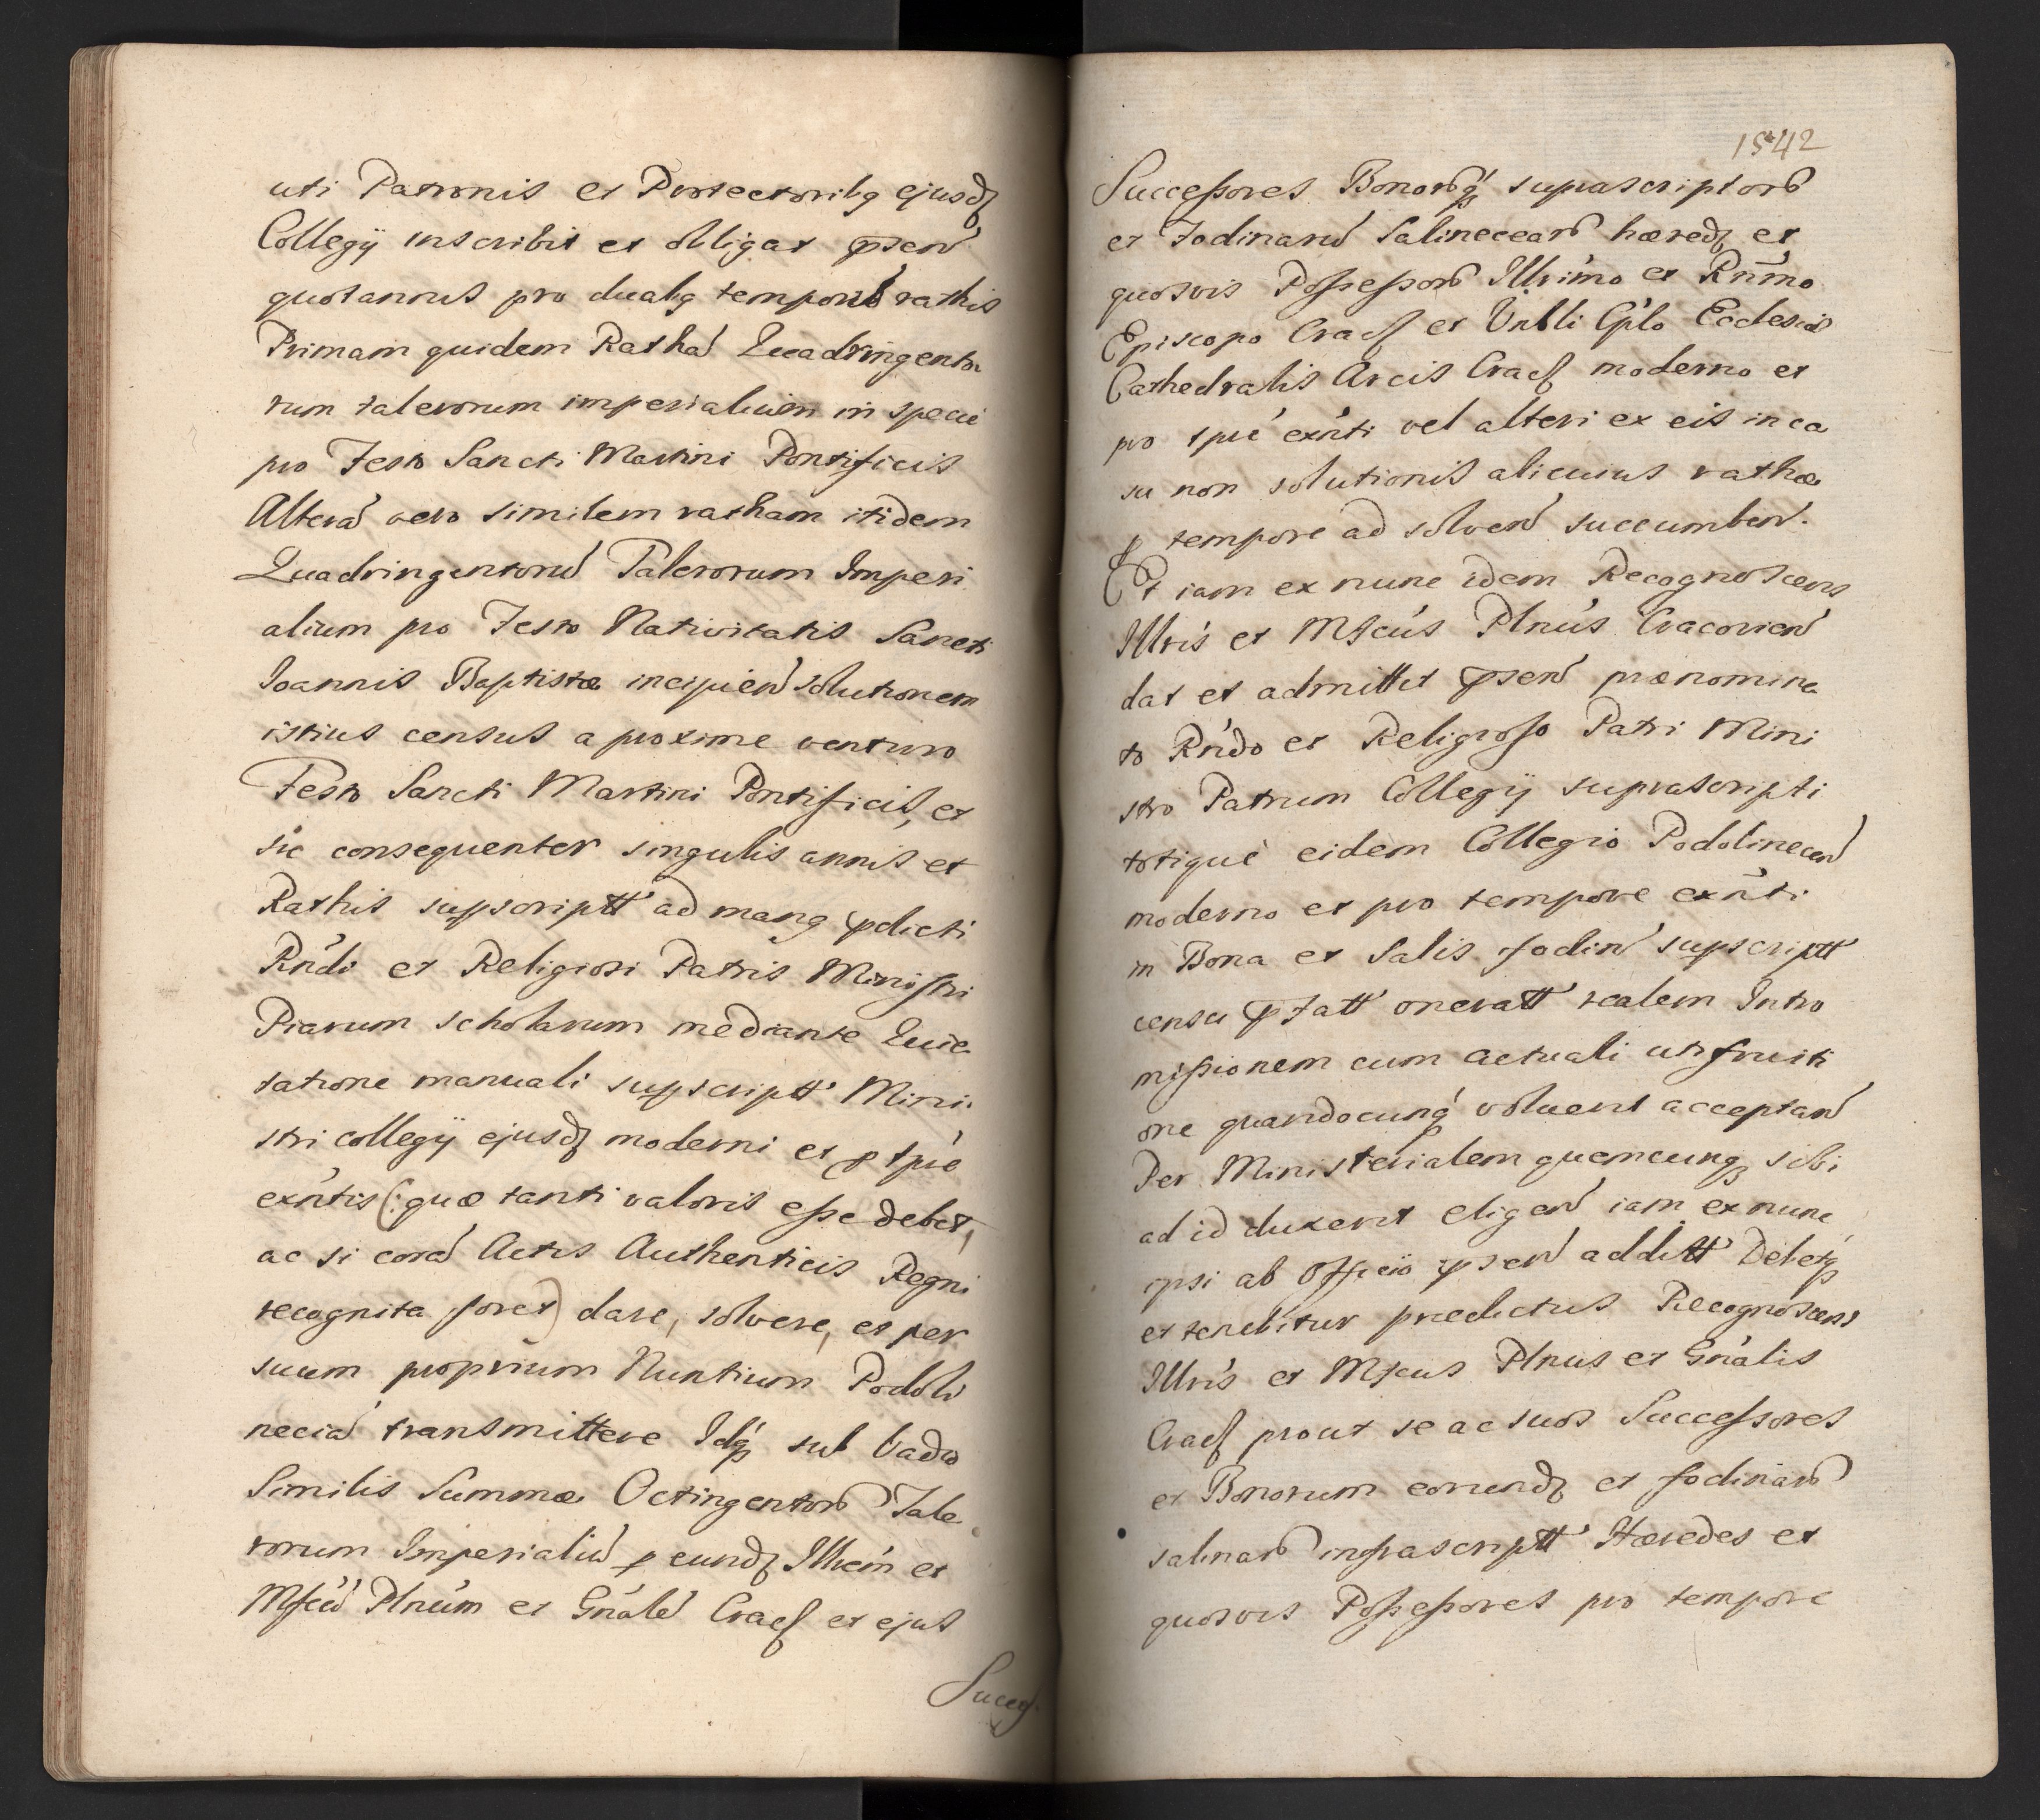 uti Patronis et Protectoribq ejusdꝫ
Collegÿ inscribit et obligat p̄sen̄
quotannis pro dualbq temporū rathis
Primam quidem Rathā Quadringento
rum talerorum imperialium in specie
pro Festo Sancti Martini Pontificis
Alterā vero similem ratham itidem
Quadringentorū Talerorum Imperi
alium pro Festo Nativitatis Sancti
Joannis Baptistæ incipien̄ solutionem
istius census a proxime venturo
Festo Sancti Martini Pontificis, et
sic consequenter singulis annis et
Rathis supscriptt ad manq p̄dicti
Rńdi et Religiosi Patris Ministri
Piarum scholarum mediante Quie
tatione manuali supscriptt Mini
stri collegÿ ejusdꝫ moderni et ꝓ tp̄re
exńtis (: quæ tanti valoris esse debet,
ac si corā Actis Authenticis Regni
recognita foret) dare, solvere, et per
suum proprium Nuntium Podoli
neciā transmittere Idqꝫ sub Vadio
Similis Summæ Octingentorū Tale
rorum Imperialiū ꝑ eundꝫ Illrēm et
Mfcū Plnūm et Gnālē Cracꝭ et ejus
Success.
1542
Successores Bonorūqꝫ suprascriptorū
et Fodinarū Salinecearū hæredꝫ et
quosvis Possessorū Illrimo et Rńmo
Episcopo Cracꝭ et Vnbli Cp̄lo Ecclesiæ
Cathedralis Arcis Cracꝭ moderno et
pro tp̄re exńti vel alteri ex eis in ca
su non solutionis alicuius rathæ
ꝑ tempore ad solven̄ succumben̄.
Et iam ex nunc idem Recognoscens
Illris et Mfcus Plnus Cracovien̄
dat et admittit p̄sen̄ prænomina
to Rńdo et Religioso Patri Mini
stro Patrum Collegÿ suprascripti
totique eidem Collegio Podolinecen̄
moderno et pro tempore exńti
in Bona et Salis fodin̄ supscriptt
censu p̄fatt oneratt realem Intro
missionem cum actuali utifruiti
one quandocunqꝫ voluerit acceptan̄
Per Ministerialem quemcunqꝫ sibi
ad id duxerit eligen̄ iam ex nunc
ipsi ab Officio p̄sen̄ additt Debetqꝫ
et tenebitur prædictus Recognoscens
Illris et Mfcus Plnus et Gnālis
Cracꝭ prout se ac suos Successores
et Bonorum eorundꝫ et fodinarū
salinarū infrascriptt Hæredes et
quosvis Possessores pro tempore